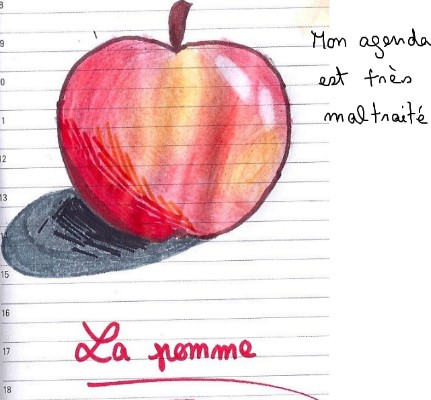 8
9
Mon agenda
est très
maltraité
0
1
12
13
15
16
La pomme
17
18